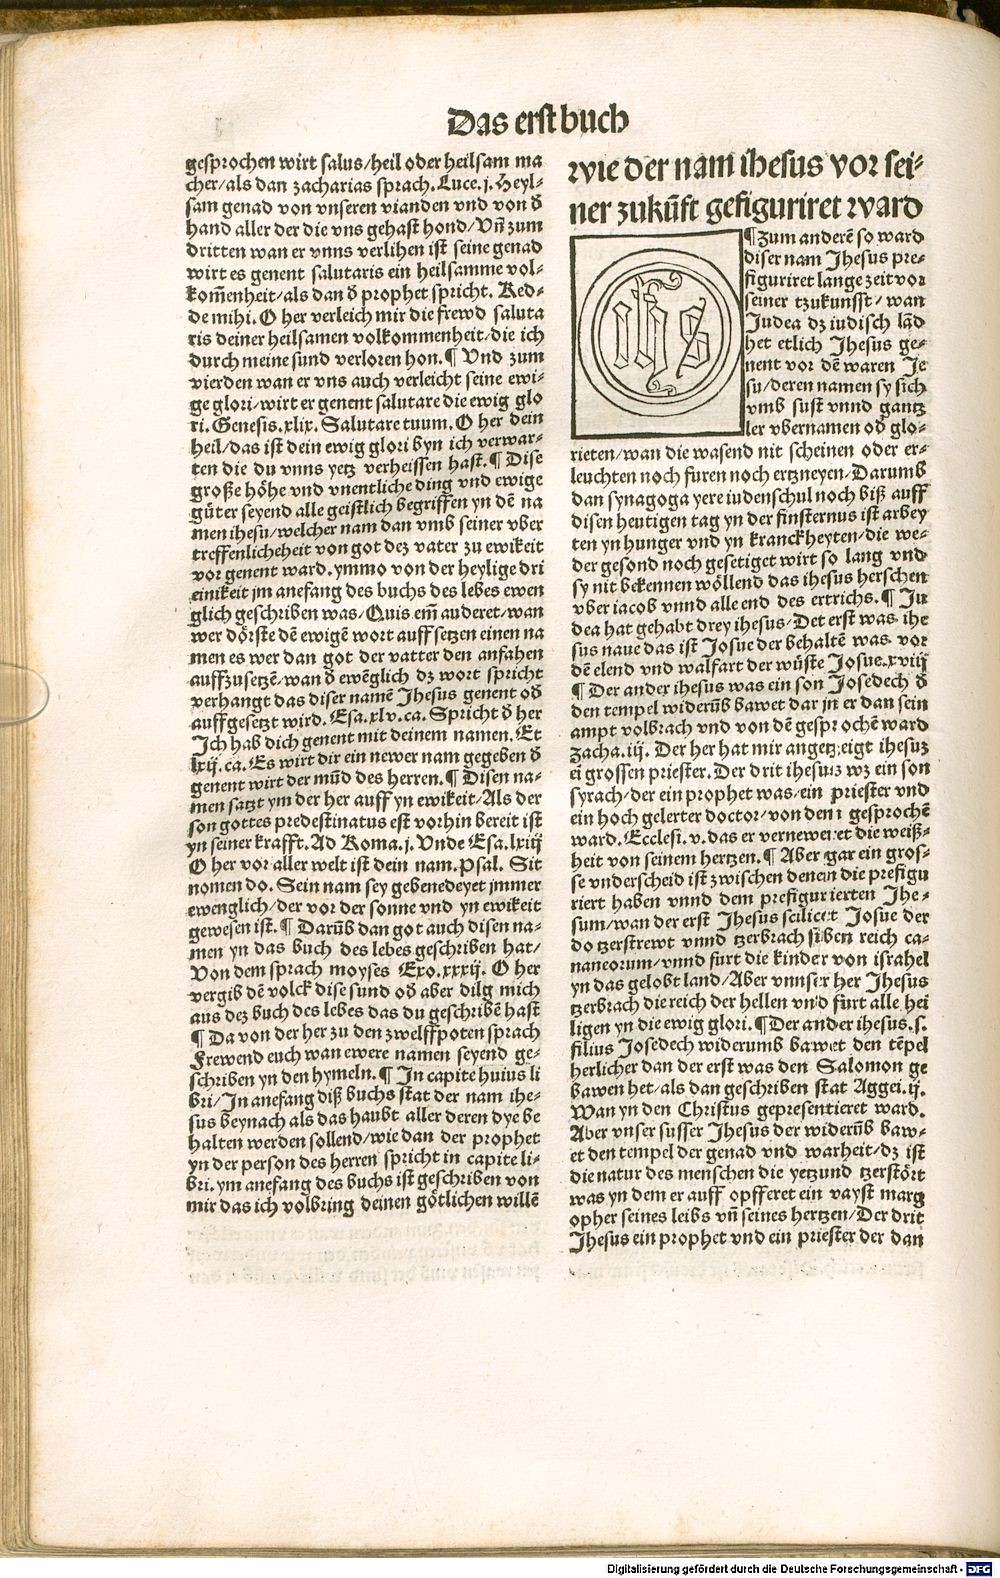 Das erst buch
gesprochen wirt salus/heil oder heilsam ma
cher/als dan zacharias sprach. Luce.j. Heyl-
sam genad von vnseren vianden vnd von d̄
hand aller der die vns gehast hond/Vn̄ zum
dritten wan er vnns verlihen ist seine genad
wirt es genent salutaris ein heilsamme vol-
kom̄enheit/als dan d̄ prophet spricht. Red-
de mihi. O her verleich mir die frewd saluta
ris deiner heilsamen volkommenheit/die ich
durch meine sund verloren hon.¶ Vnd zum
vierden wan er vns auch verleicht seine ewi-
ge glori/wirt er genent salutare die ewig glo
ri. Genesis.xlix. Salutare tuum. O her dein
heil/das ist dein ewig glori byn ich verwar-
ten die du vnns yetz verheissen hast.¶ Dise
große höhe vnd vnentliche ding vnd ewige
gu̇ter seyend alle geistlich begriffen yn dē na
men ihesu/welcher nam dan vmb seiner vber
treffenlicheheit von got dez vater zu ewikeit
vor genent ward.ymmo von der heylige dri
einikeit jm anefang des buchs des lebes ewen
glich geschriben was/Quis em̄ auderet/wan
wer dörste dē ewigē wort auff setzen einen na
men es wer dan got der vatter den anfahen
auffzusetzē/wan d̄ ewēglich dz wort spricht
verhangt das diser namē Jhesus genent od̄
auffgesetzt wird. Esa.xlv.ca. Spricht d̄ her
Ich hab dich genent mit deinem namen. Et
lxij.ca. Es wirt dir ein newer nam gegeben d̄
genent wirt der mūd des herren.¶ Disen na-
men satzt ym der her auff yn ewikeit/Als der
son gottes predestinatus est vorhin bereit ist
yn seiner krafft. Ad Roma.j. Vnde Esa.lxiij
O her vor aller welt ist dein nam. Psal. Sit
nomen do. Sein nam sey gebenedeyet jmmer
ewenglich/der vor der sonne vnd yn ewikeit
gewesen ist.¶ Darūb dan got auch disen na-
men yn das buch des lebes geschriben hat/
Von dem sprach moyses Exo.xxxij. O her
vergib dē volck dise sund od̄ aber dilg mich
aus dez buch des lebes das du geschribē hast
¶ Da von der her zu den zwelffpoten sprach
Frewend euch wan ewere namen seyend ge-
schriben yn den hymeln.¶ In capite huius li
bri/In anefang diß buchs stat der nam ihe-
sus beynach als das haubt aller deren dye be
halten werden sollend/wie dan der prophet
yn der person des herren spricht in capite li-
bri.ym anefang des buchs ist geschriben von
mir das ich volbring deinen götlichen willē
wie der nam ihesus vor sei-
ner zukūft gefiguriret ward
ihs
¶ Zum anderē so ward
diser nam Jhesus pre-
figuriret lange zeit vor
seiner tzukunfft/wan
Judea dz iudisch lād
het etlich Jhesus ge-
nent vor dē waren Je
su/deren namen sy sich
vmb sust vnnd gantz
ler vbernamen od̄ glo-
rieten/wan die wasend nit scheinen oder er-
leuchten noch furen noch ertzneyen/Darumb
dan synagoga yere iudenschul noch biß auff
disen heutigen tag yn der finsternus ist arbey
ten yn hunger vnd yn kranckheyten/die we-
der gesond noch gesetiget wirt so lang vnd
sy nit bekennen wöllend das ihesus herschen
vber iacob vnnd alle end des ertrichs.¶ Ju
dea hat gehabt drey ihesus/Det erst was ihe
sus naue das ist Josue der behaltē was vor
dē elend vnd walfart der wüste Josue.xviij
¶ Der ander ihesus was ein son Josedech d̄
den tempel widerūb bawet dar jn er dan sein
ampt volbrach vnd von dē gesprochē ward
Zacha.iij. Der her hat mir angetzeigt ihesuz
eī grossen priester. Der drit ihesus wz ein son
syrach/der ein prophet was/ein priester vnd
ein hoch gelerter doctor/von dem gesprochē
ward. Ecclesi.v.das er verneweret die weiß-
heit von seinem hertzen.¶ Aber gar ein gros-
se vnderscheid ist zwischen denen die prefigu
riert haben vnnd dem prefigurierten Jhe-
sum/wan der erst Jhesus scilicet Josue der
do tzerstrewt vnnd tzerbrach siben reich ca-
naneorum/vnnd furt die kinder von israhel
yn das gelobt land/Aber vnnser her Jhesus
tzerbrach die reich der hellen vnd furt alle hei
ligen yn die ewig glori.¶ Der ander ihesus.s.
filius Josedech widerumb bawet den tēpel
herlicher dan der erst was den Salomon ge
bawen het/als dan geschriben stat Aggei.ij.
Wan yn den Christus gepresentieret ward.
Aber vnser susser Jhesus der widerūb baw-
et den tempel der genad vnd warheit/dz ist
die natur des menschen die yetzund tzerstört
was yn dem er auff opfferet ein vayst marg
opher seines leibs vn̄ seines hertzen/Der drit
Jhesus ein prophet vnd ein priester der dan
Digitalisierung gefördert durch die Deutsche Forschungsgemeinschaft - DFG